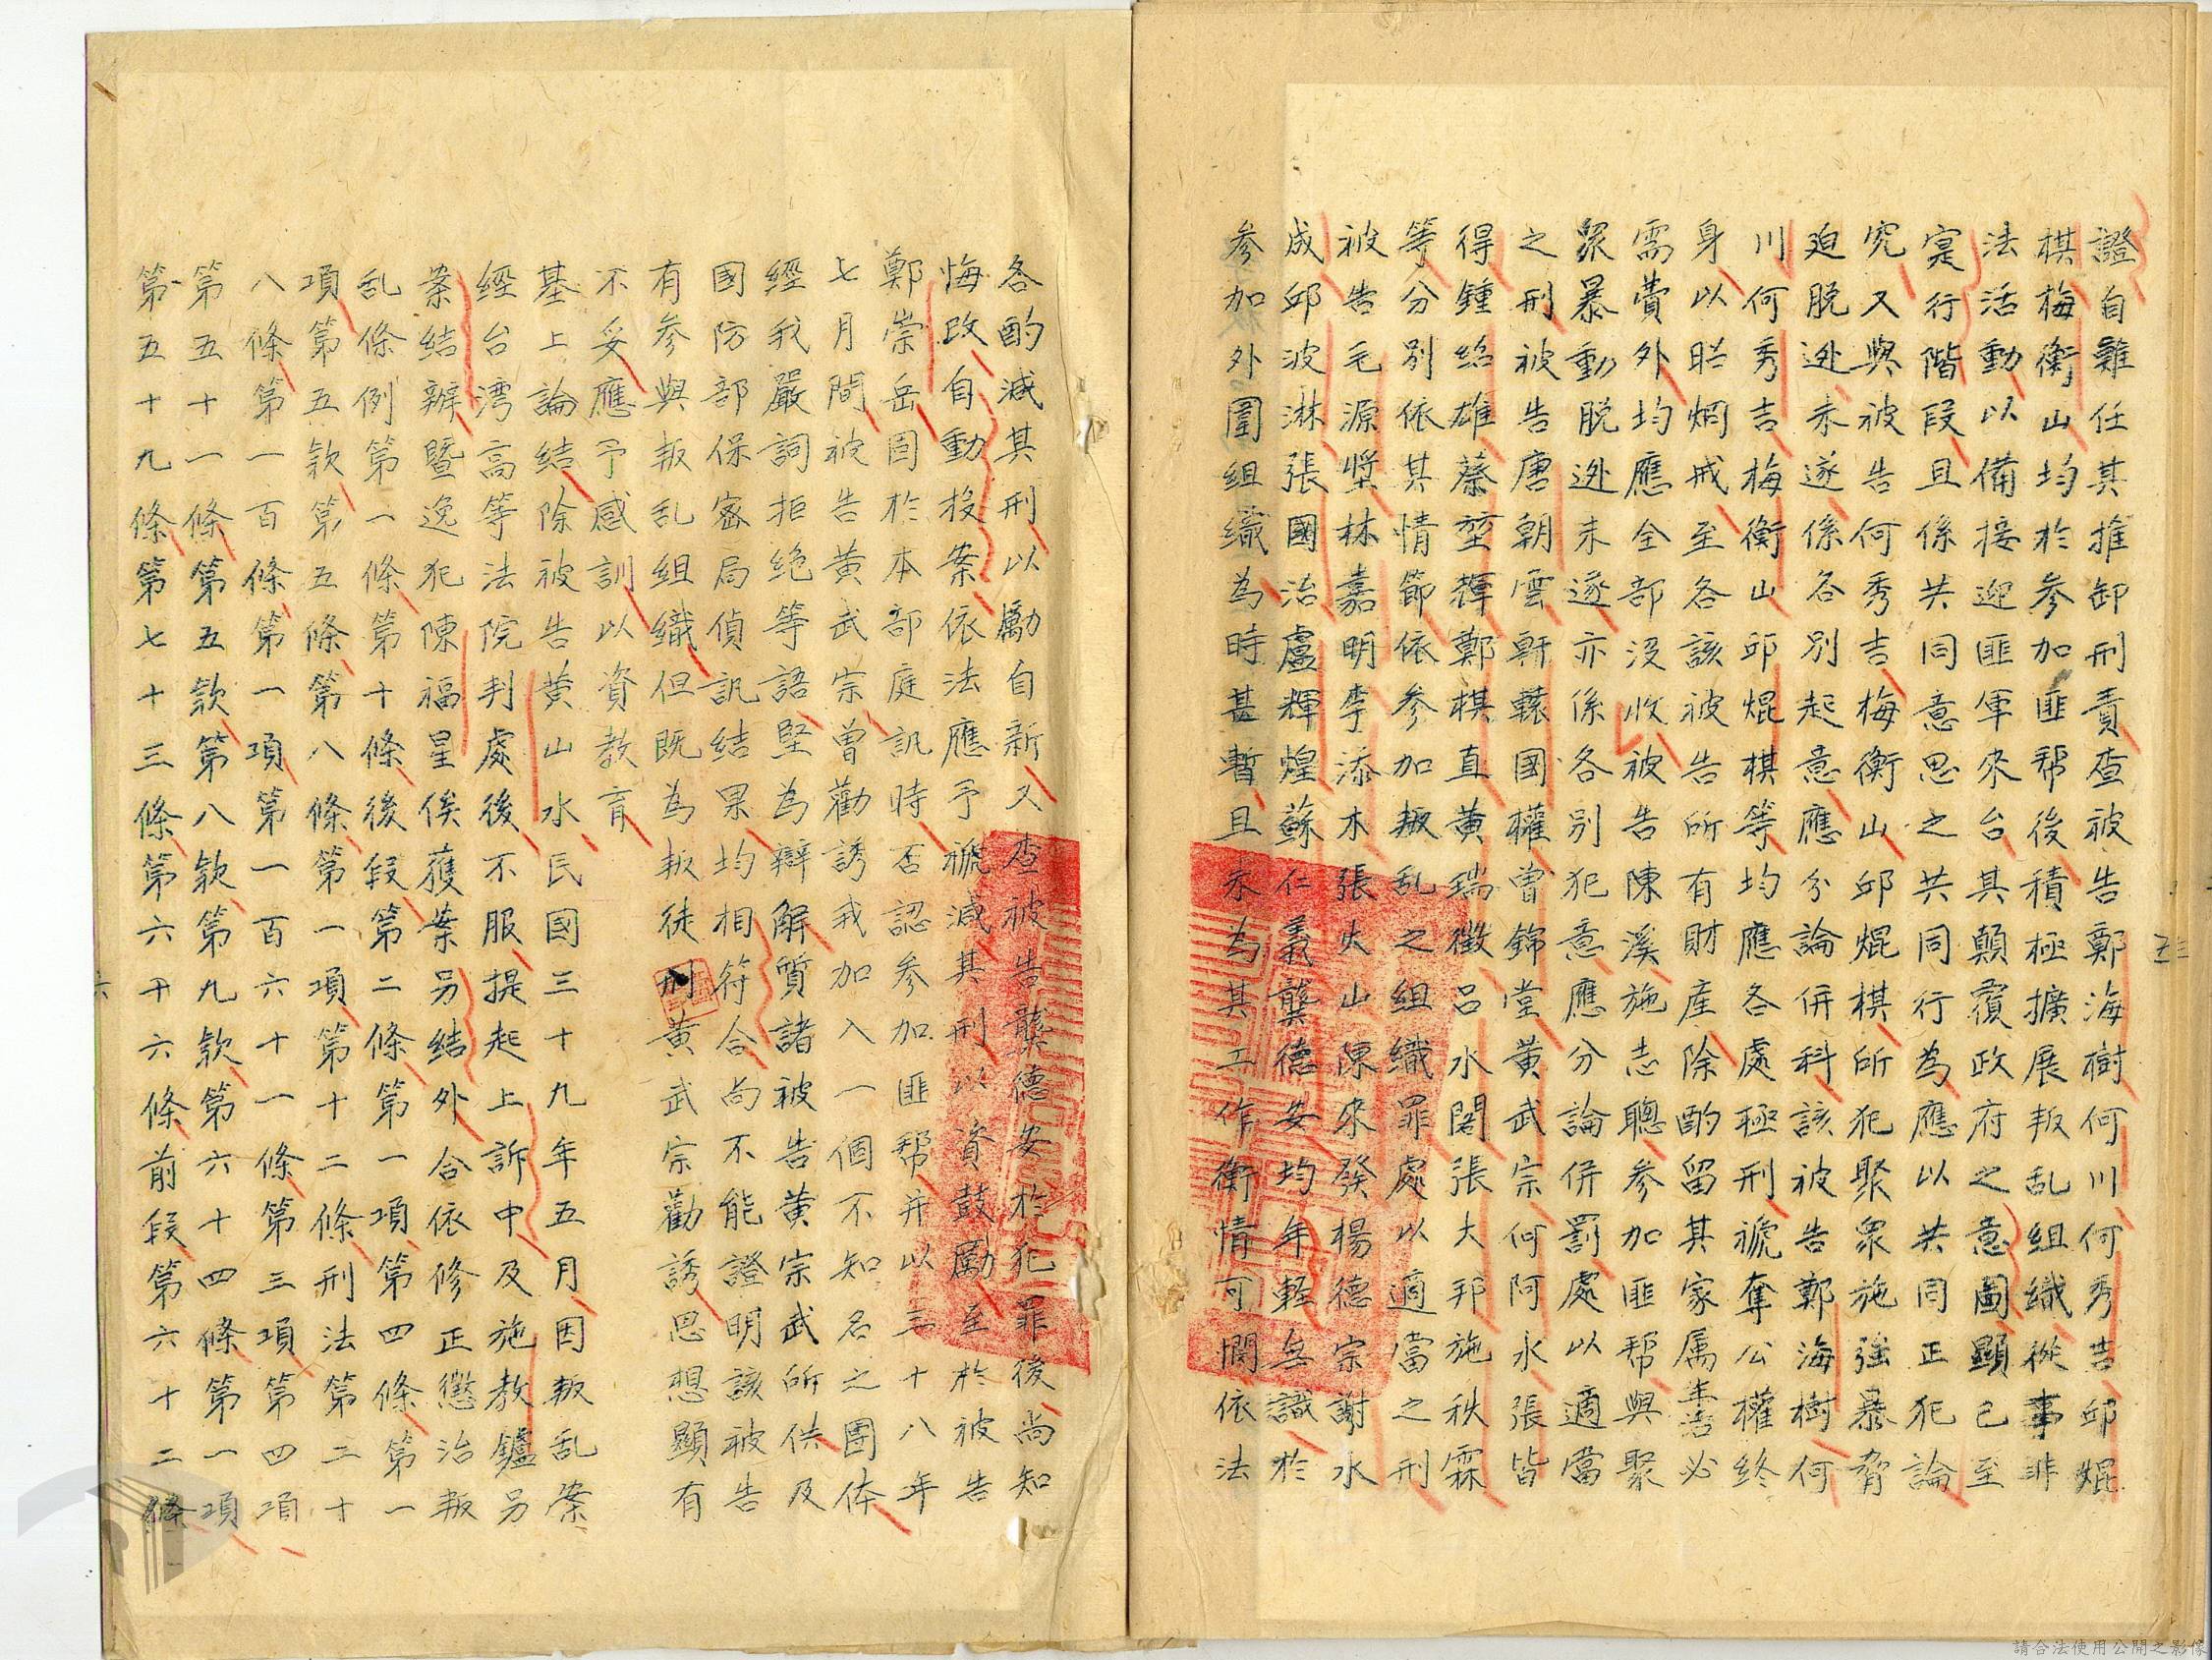 證自難任其推卸刑責查被告鄭海樹何川何秀吉邱焜
棋梅衡山均於參加匪帮後積極擴展叛乱組織從事非
法活動以備接迎匪軍來台其顛覆政府之意圖顯已至
寔行階段且係共同意思之共同行為應以共同正犯論
究又與被告何秀吉梅衡山邱焜棋所犯聚眾施強暴脅
迫脫逃未遂係各別起意應分論併科該被告鄭海樹何
川何秀吉梅衡山邱焜棋等均應各處極刑褫奪公權終
身以昭烱戒至各該被告所有財產除酌留其家属生活必
需費外均應全部沒收被告陳溪施志聰參加匪帮與聚
眾暴動脫逃未遂亦係各別犯意應分論併罰處以適當
之刑被告唐朝雲軒轅國權曾錦堂黃武宗何阿水張皆
得鍾紹雄蔡堃輝鄭棋直黃瑞徵呂水閣張大邦施秋霖
等分別依其情節依參加叛乱之組織罪處以適當之刑
被告毛源墏林嘉明李添木張火山陳來發楊德宗謝水
成邱波淋張國治盧輝煌蘇仁義龔德安均年輕無識於
參加外圍組織為時甚暫且未為其工作衡情可憫依法
各酌減其刑以勵自新又查被告龔德安於犯罪後尚知
悔改自動投案依法應予褫減其刑以資鼓勵至於被告
鄭崇岳因於本部庭訊時否認參加匪帮并以三十八年
七月間被告黃武宗曾勸誘我加入一個不知名之團体
經我嚴詞拒絶等語堅為辯解質諸被告黃宗武所供及
國防部保密局偵訊結果均相符合尚不能證明該被告
有參與叛乱組織但既為叛徒刑黃武宗勸誘思想顯有
不妥應予感訓以資教育
基上論結除被告黃山水民國三十九年五月因叛乱案
經台湾高等法院判處後不服提起上訴中及施教鑪另
案結辦暨逸犯陳福星俟獲案另結外合依修正懲治叛
乱條例第一條第十條後段第二條第一項第四條第一
項第五款第五條第八條第一項第十二條刑法第二十
八條第一百條第一項第一百六十一條第三項第四項
第五十一條第五款第八款第九款第六十四條第一項
第五十九條第七十三條第六十六條前段第六十二條
請合法使用公開之影像